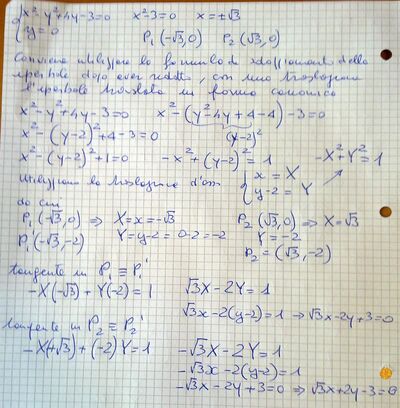 { x²-y²+4y-3=0   x²-3=0   x=±√3
y=0   P₁(-√3,0)   P₂(√3,0)
Conviene utilizzare le formule di sdoppiamento della
iperbole dopo aver ridotto, con una traslazione
l'iperbole traslata in forma canonica
x²-y²+4y-3=0   x²-(y²-4y+4-4)-3=0
x²-(y-2)²+4-3=0   (y-2)²
x²-(y-2)²+1=0   -x²+(y-2)²=1   -X²+Y²=1
Utilizziamo la traslazione d'assi   { x=X
y-2=Y
da cui
P₁(-√3,0) ⇒ X=x=-√3   P₂(√3,0) ⇒ X=√3
P₁'(-√3,-2)   Y=y-2=0-2=-2   Y=-2
P₂=(√3,-2)
tangente in P₁≡P₁'
-X(-√3)+Y(-2)=1   √3X-2Y=1
√3x-2(y-2)=1 → √3x-2y+3=0
tangente in P₂≡P₂'
-X(+√3)+(-2)Y=1   -√3X-2Y=1
-√3x-2(y-2)=1
-√3x-2y+3=0 → √3x+2y-3=0